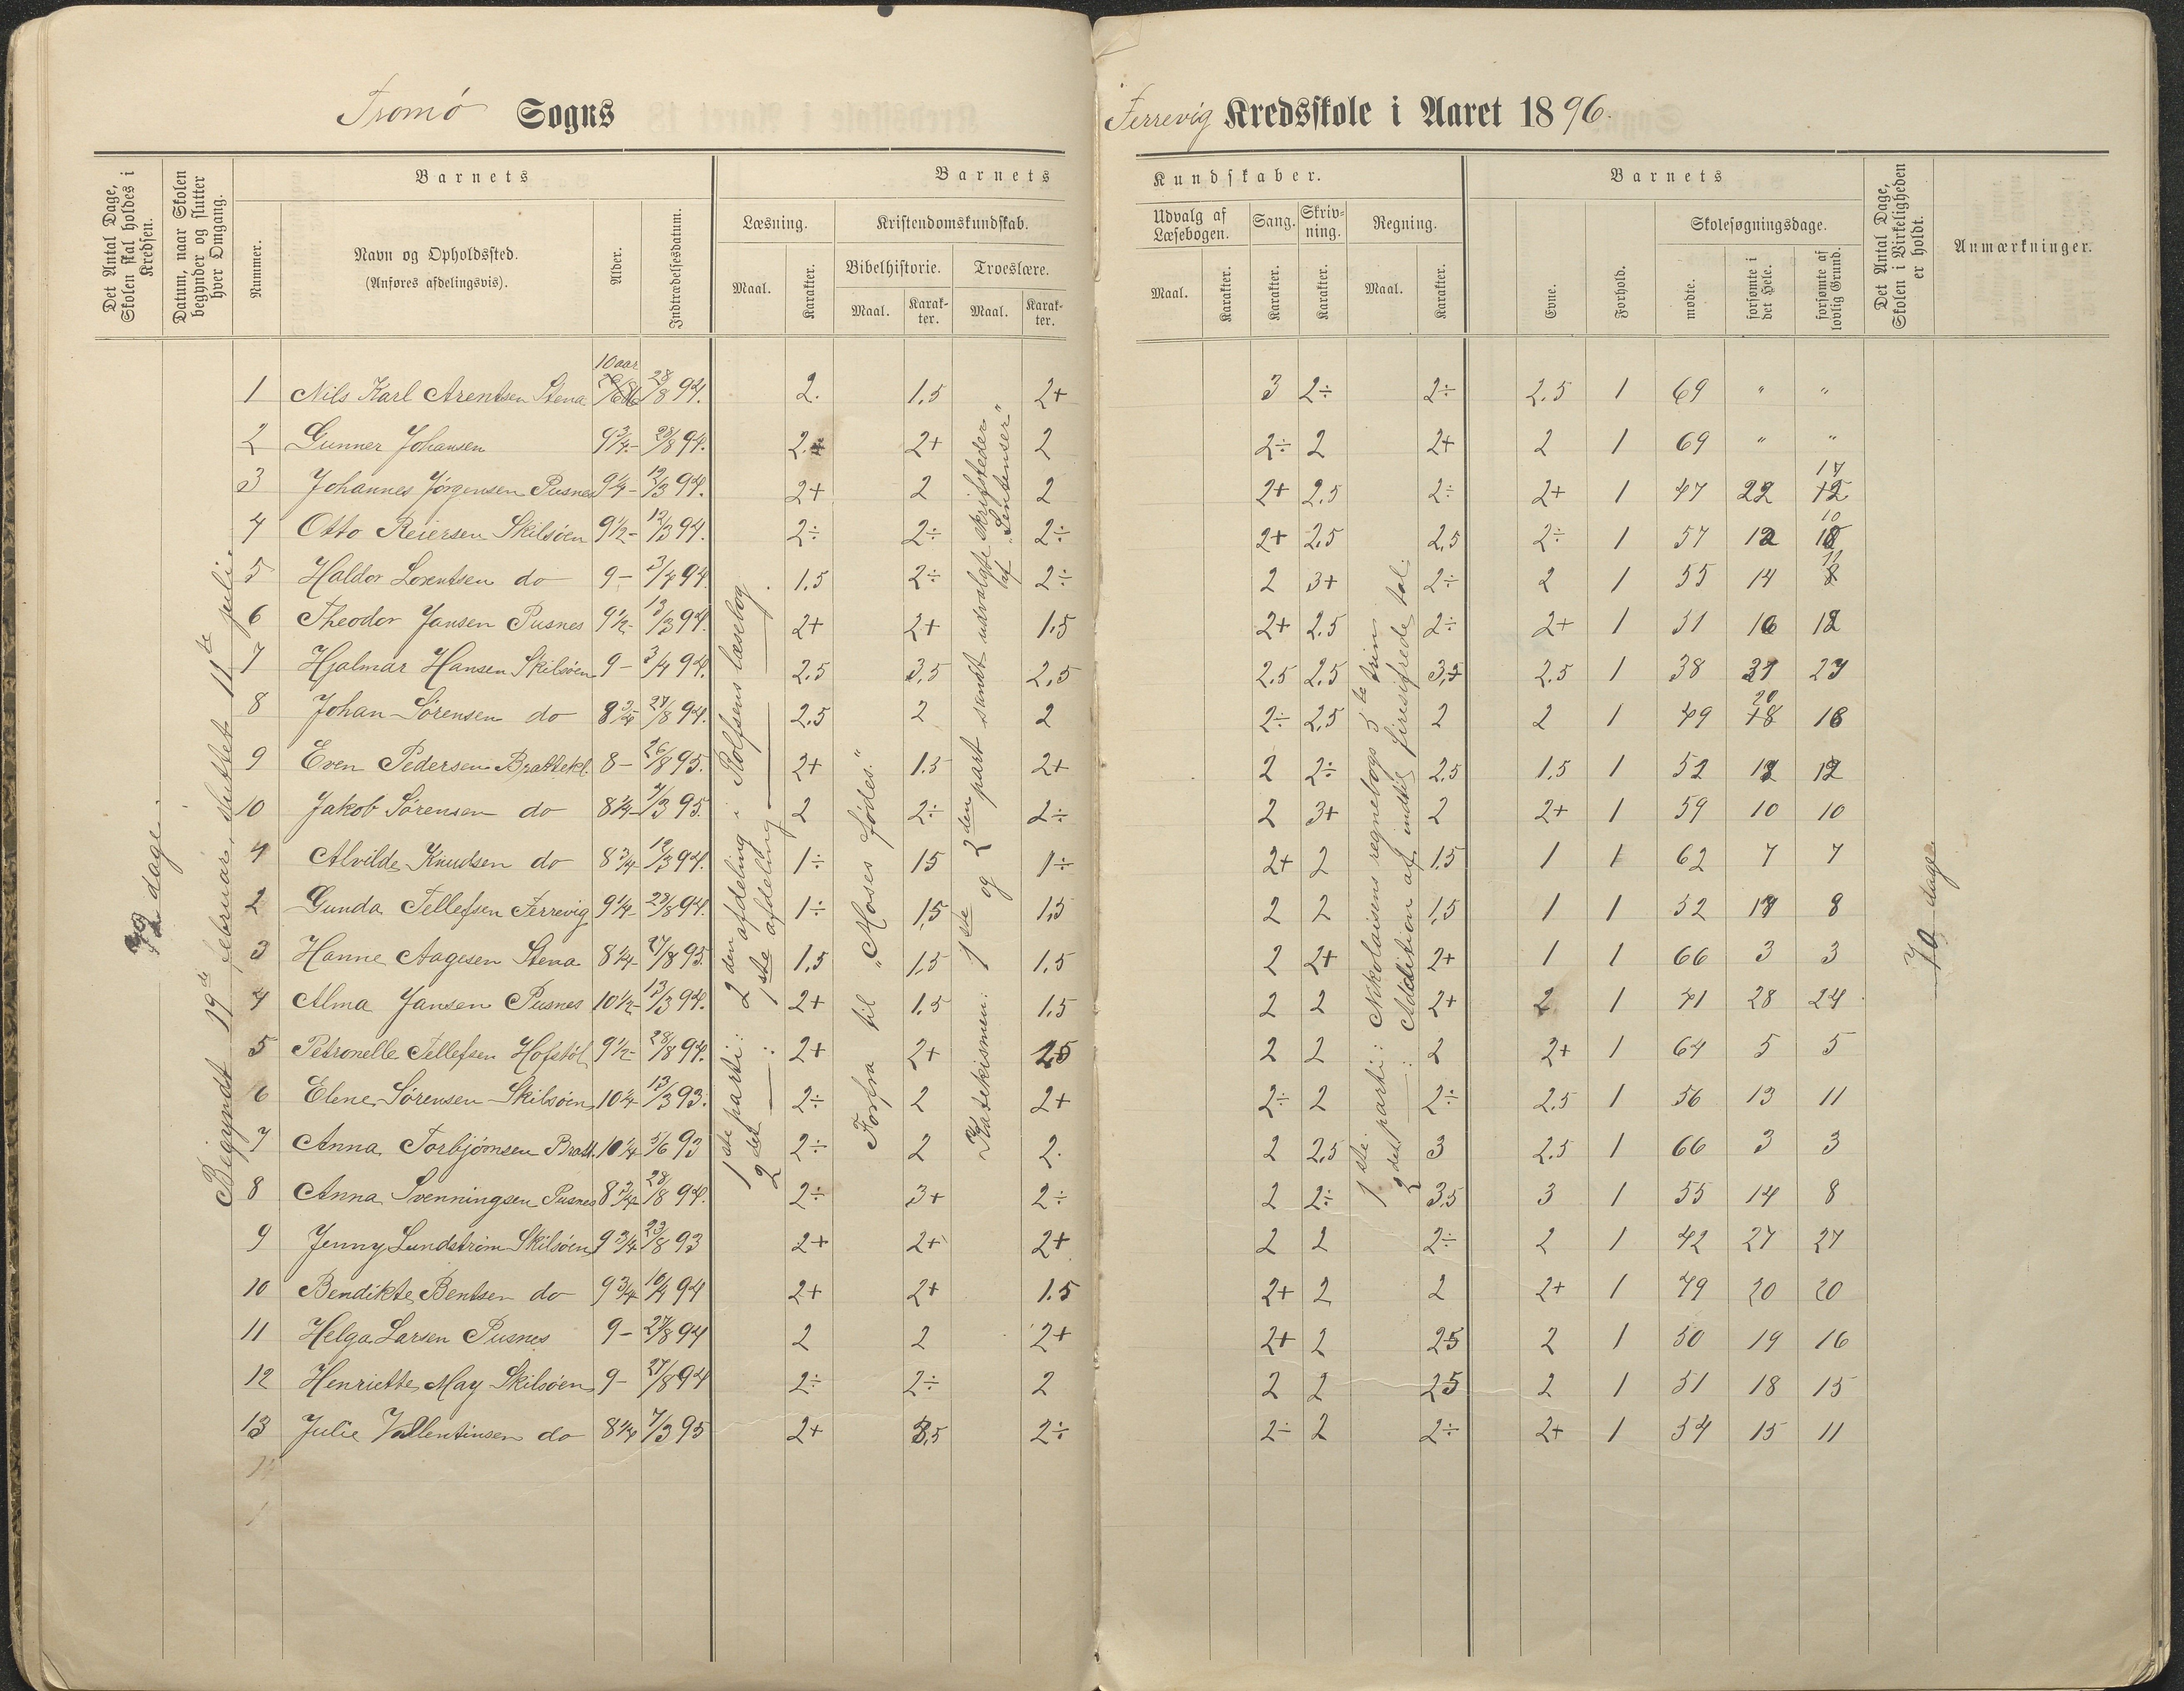 Tromø Sogns
Det Antal Dage, Skolen skal holdes i Kredsen.
Datum, naar Skolen begynder og slutter hver Omgang.
Barnets
Nummer.
Navn og Opholdssted.
(Anføres afdelingsvis).
Alder.
Indtrædelsesdatum.
Barnets
Læsning.
Maal.
Karakter.
Kristendomskundskab.
Bibelhistorie.
Maal.
Karakter.
Troeslære.
Maal.
Karakter.
dage.
Begyndt 19de februar, sluttet 11te juli.
1 Nils Karl Arentsen Stena 10 aar 28/8 94. 2. 1.5 2+
2 Gunner Johansen 9 3/4 - 28/8 94. 2. 2+ 2
3 Johannes Jörgensen Pusnes 9 1/4 - 12/3 94. 2+ 2 2
4 Otto Reiersen Skilsöen 9 1/2 - 12/3 94. 2÷ 2÷ 2÷
5 Haldor Lorentsen do 9 - 3/4 94. 1.5 2÷ 2÷
6 Theodor Jansen Pusnes 9 1/2 - 13/3 94. 2+ 2+ 1.5
7 Hjalmar Hansen Skilsöen 9 - 3/4 94. 2.5 3,5 2,5
8 Johan Sörensen do 8 3/4 27/8 94. 2.5 2 2
9 Even Pedersen Brattekl. 8 - 26/8 95. 2+ 1.5 2+
10 Jakob Sörensen do 8 1/4 - 7/3 95. 2 2÷ 2÷
Alvilde Knudsen do 8 3/4 12/3 94. 1÷ 15 1÷
2 Gunda Tellefsen Færrevig 9 1/4 - 29/8 94. 1÷ 1,5 1,5
3 Hanne Aagesen Stena 8 1/4 - 27/8 95. 1,5 1,5 1,5
4 Alma Jansen Pusnes 10 1/2 - 13/3 94. 2+ 1.5 1.5
5 Petronelle Tellefsen Hofstöl 9 1/2 - 28/8 94. 2+ 2+ 25
6 Elene Sörensen Skilsöen 10 1/4 - 13/3 93. 2÷ 2 2+
7 Anna Torbjörnsen Bratt. 10 1/4 5/6 93 2÷ 2 2.
8 Anna Svenningsen Pusnes 8 3/4 28/8 94. 2÷ 3+ 2÷
9 Jenny Lundström Skilsöen 9 3/4 23/8 93 2+ 2+ 2+
10 Bendikte Bentsen do 9 3/4 10/4 94 2+ 2+ 1.5
11 Helga Larsen Pusnes 9 - 27/8 94 2 2 2+
12 Henriette May Skilsöen 9 - 27/8 94 2÷ 2÷ 2
13 Julie Vallentinsen do 8 1/4 7/3 95 2+ 3,5 2÷
1ste parti: 2den afdeling i Rolfsens læsebog.
2det — : 1ste afdeling — —
Forfra til „Moses fødes."
Katekismen: 1ste og 2den part samt udvalgte skriftsteder
af „Sentenser"
Færrevig Kredsskole i Aaret 1896.
Kundskaber.
Udvalg af Læsebogen.
Maal.
Karakter.
Sang.
Karakter.
Skrivning.
Karakter.
Regning.
Maal.
Karakter.
Barnets
Evne.
Forhold.
Skolesøgningsdage.
mødte.
forsømte i det Hele.
forsømte af lovlig Grund.
Det Antal Dage, Skolen i Virkeligheden er holdt.
Anmærkninger.
3 2÷ 2÷ 2.5 1 69 " "
2÷ 2 2+ 2 1 69 " "
2+ 2.5 2÷ 2+ 1 47 22 17
2+ 2.5 2,5 2÷ 1 57 12 10
2 3+ 2÷ 2 1 55 14
2+ 2.5 2÷ 2+ 1 51 16 12
2.5 2.5 3,5 2.5 1 38 31 27
2÷ 2,5 2 2 1 49 20 16
2 2÷ 2.5 1.5 1 52 12
2 3+ 2 2+ 1 59 10 10
2+ 2 1.5 1 1 62 7 7
2 2 1,5 1 1 52 17 8
2 2+ 2+ 1 1 66 3 3
2 2 2+ 2 1 41 28 24
2 2 2 2+ 1 64 5 5
2÷ 2 2÷ 2.5 1 56 13 11
2 2,5 3 2.5 1 66 3 3
2 2÷ 3,5 3 1 55 14 8
2 2 2÷ 2 1 42 27 27
2+ 2 2 2+ 1 49 20 20
2+ 2 25 2 1 50 19 16
2 2 25 2 1 51 18 15
2÷ 2 2÷ 2+ 1 54 15 11
1ste parti: Nikolaisens regnebogs 5te trin
2det — : Addition af indtil firesifrede tal.
70 dage